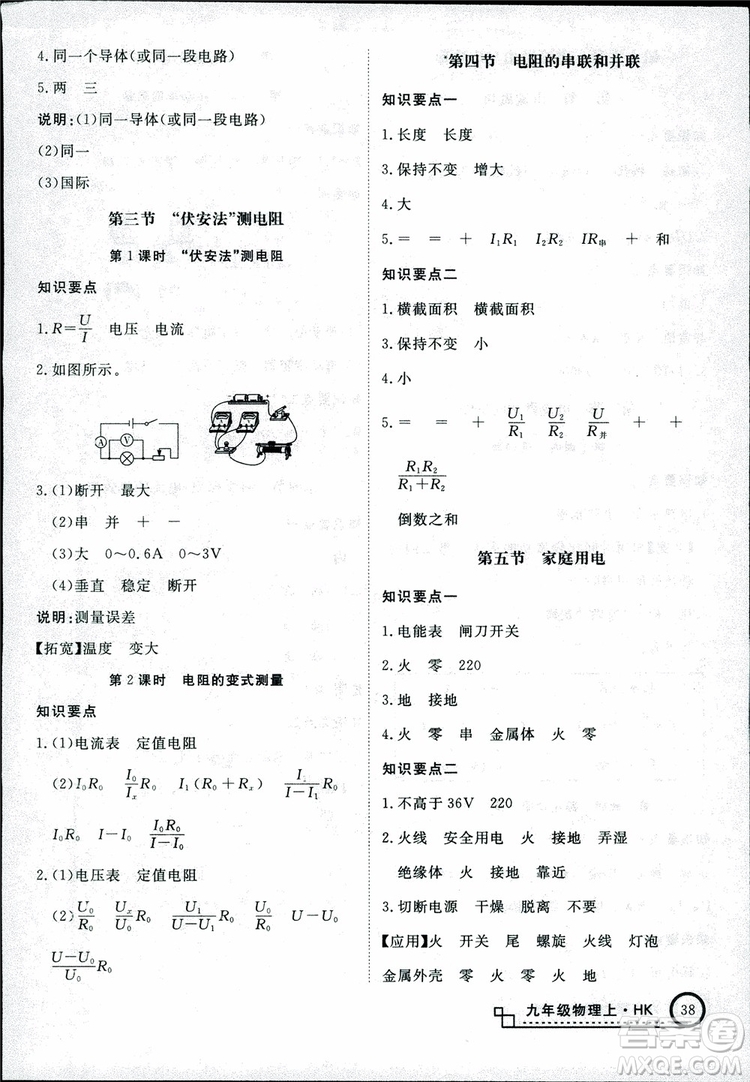 4.同一个导体(或同一段电路)
5.两　三
说明:(1)同一导体(或同一段电路)
(2)同一
(3)国际
第三节　“伏安法”测电阻
第1课时　“伏安法”测电阻
知识要点
1.R=U/I　电压　电流
2.如图所示。
A V
3.(1)断开　最大
(2)串　并　+　-
(3)大　0～0.6A　0～3V
(4)垂直　稳定　断开
说明:测量误差
【拓宽】温度　变大
第2课时　电阻的变式测量
知识要点
1.(1)电流表　定值电阻
(2)I₀R₀　I₀/Iₓ R₀　I₁(R₀+Rₓ)　I₁/(I-I₁) R₀
I₀R₀　I-I₀　I₀R₀/(I-I₀)
2.(1)电压表　定值电阻
(2)U₀/R₀　Uₓ/U₀ R₀　U₁/(U-U₁) R₀　U₀/R₀　U-U₀
(U-U₀)/U₀ R₀
第四节　电阻的串联和并联
知识要点一
1.长度　长度
3.保持不变　增大
4.大
5.=　=　+　I₁R₁　I₂R₂　IR串　+　和
知识要点二
1.横截面积　横截面积
3.保持不变　小
4.小
5.=　=　+　U₁/R₁　U₂/R₂　U/R并　+　+
R₁R₂/(R₁+R₂)
倒数之和
第五节　家庭用电
知识要点一
1.电能表　闸刀开关
2.火　零　220
3.地　接地
4.火　零　串　金属体　火　零
知识要点二
1.不高于36V　220
2.火线　安全用电　火　接地　弄湿
绝缘体　接地　靠近
3.切断电源　干燥　脱离　不要
【应用】火　开关　尾　螺旋　火线　灯泡
金属外壳　零　火　零　火　地
九年级物理上·HK 38
答案圈
MXQE.COM